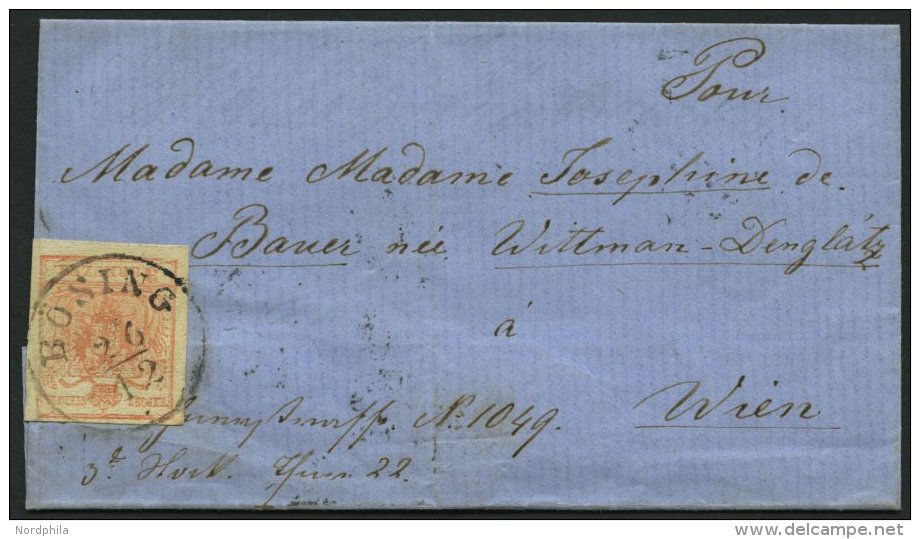 Pour
Madame Madame Josephine de
Bauer née Wittman-Denglátz
á
Wien
No. 1049.
3t Stock. Thür 22.
BÖSING
26/2
12
Nordphila
www.delcampe.net